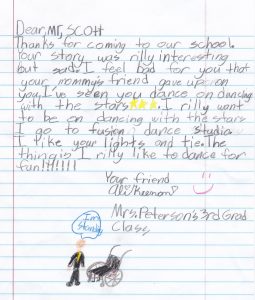 Dear, Mr, SCOtt
Thanks for coming to our school.
Your story was rilly interesting
but sad. I feel bad for you that
your mommy's friend gave up on
you, I've seen you dance on dancing
with the stars★★★. I rilly want
to be on dancing with the stars
I go to fusion dance studio.
I like your lights and tie. The
thing is I rilly like to dance for
fun!!!!!!!
Your friend
Mrs. Peterson's 3rd Grad
Class
I'm
Standing